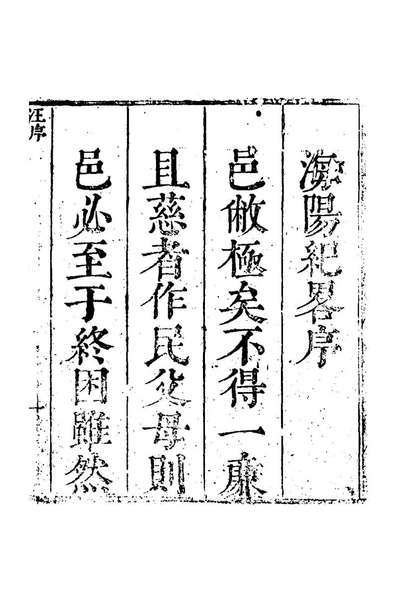 海陽紀畧序
邑敝極矣不得一廉
且慈者作民父母則
邑必至于終困雖然
汪序